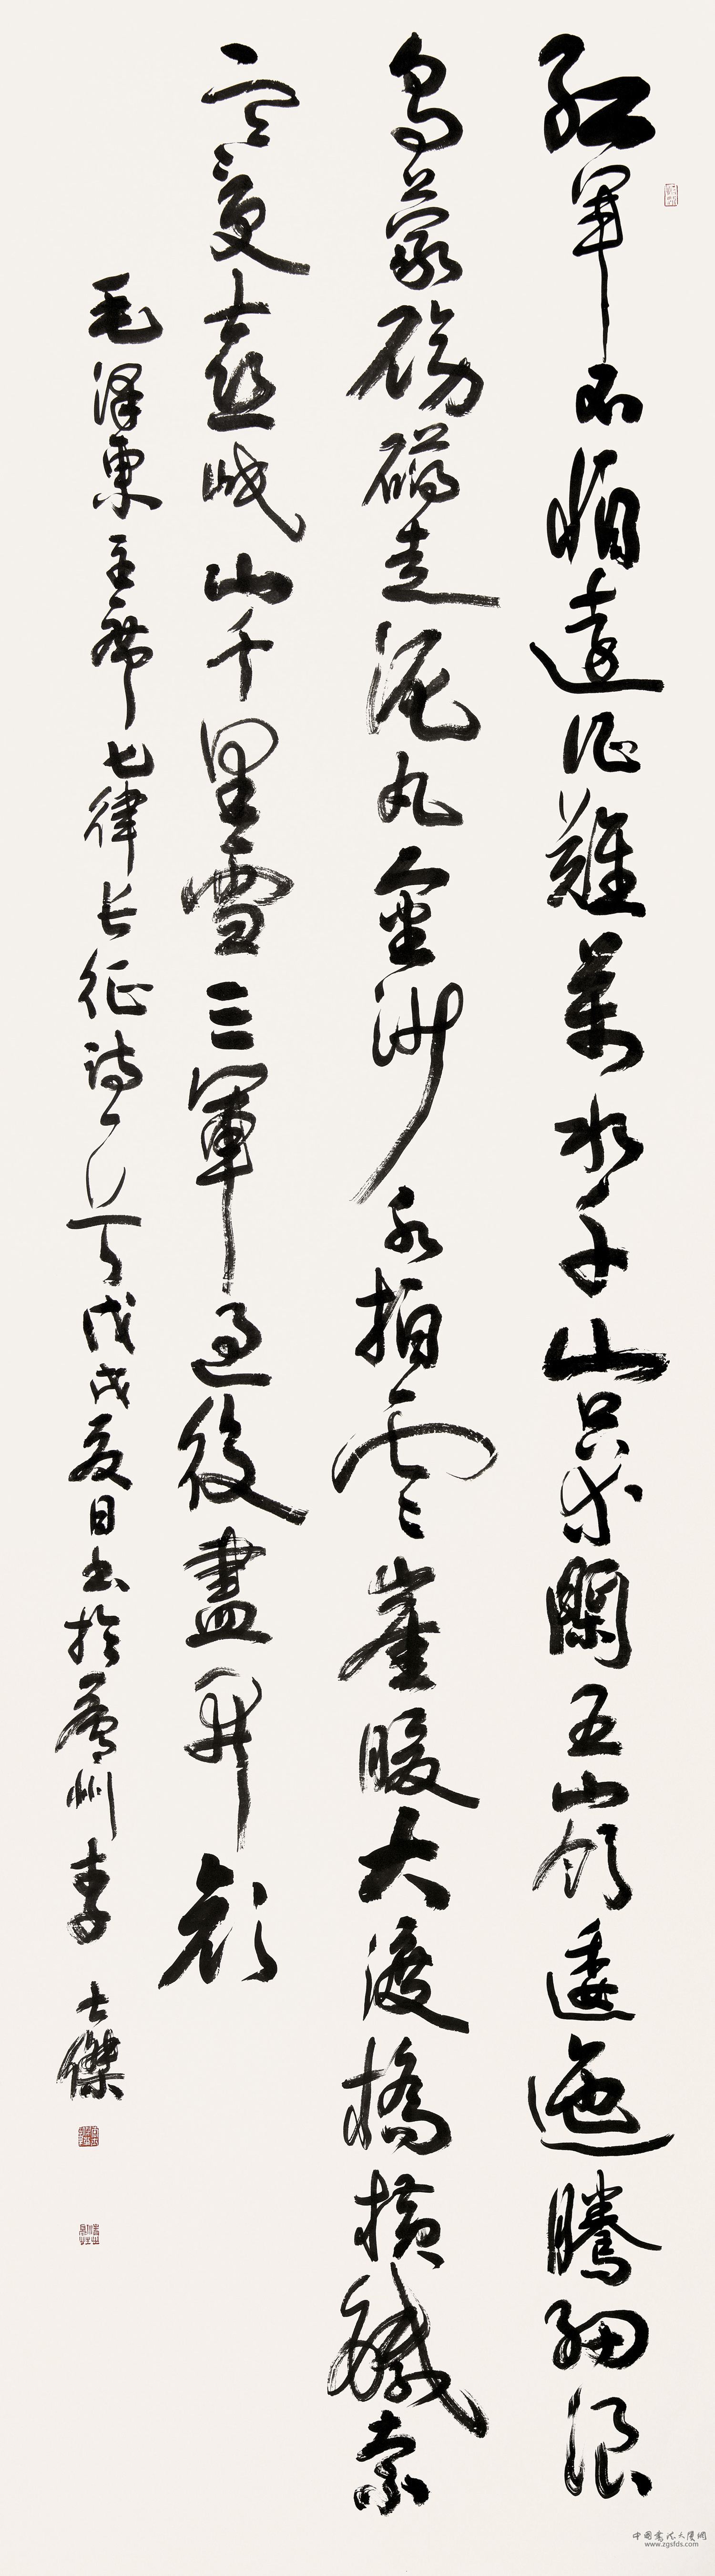 紅軍不怕遠征難萬水千山只等閑五嶺逶迤騰細浪
烏蒙磅礴走泥丸金沙水拍雲崖暖大渡橋橫鐵索
寒更喜岷山千里雪三軍過後盡開顏
毛泽東主席七律长征诗一首戊戌夏日书於廬州李士傑
中國書法大厦網
www.zgsfds.com